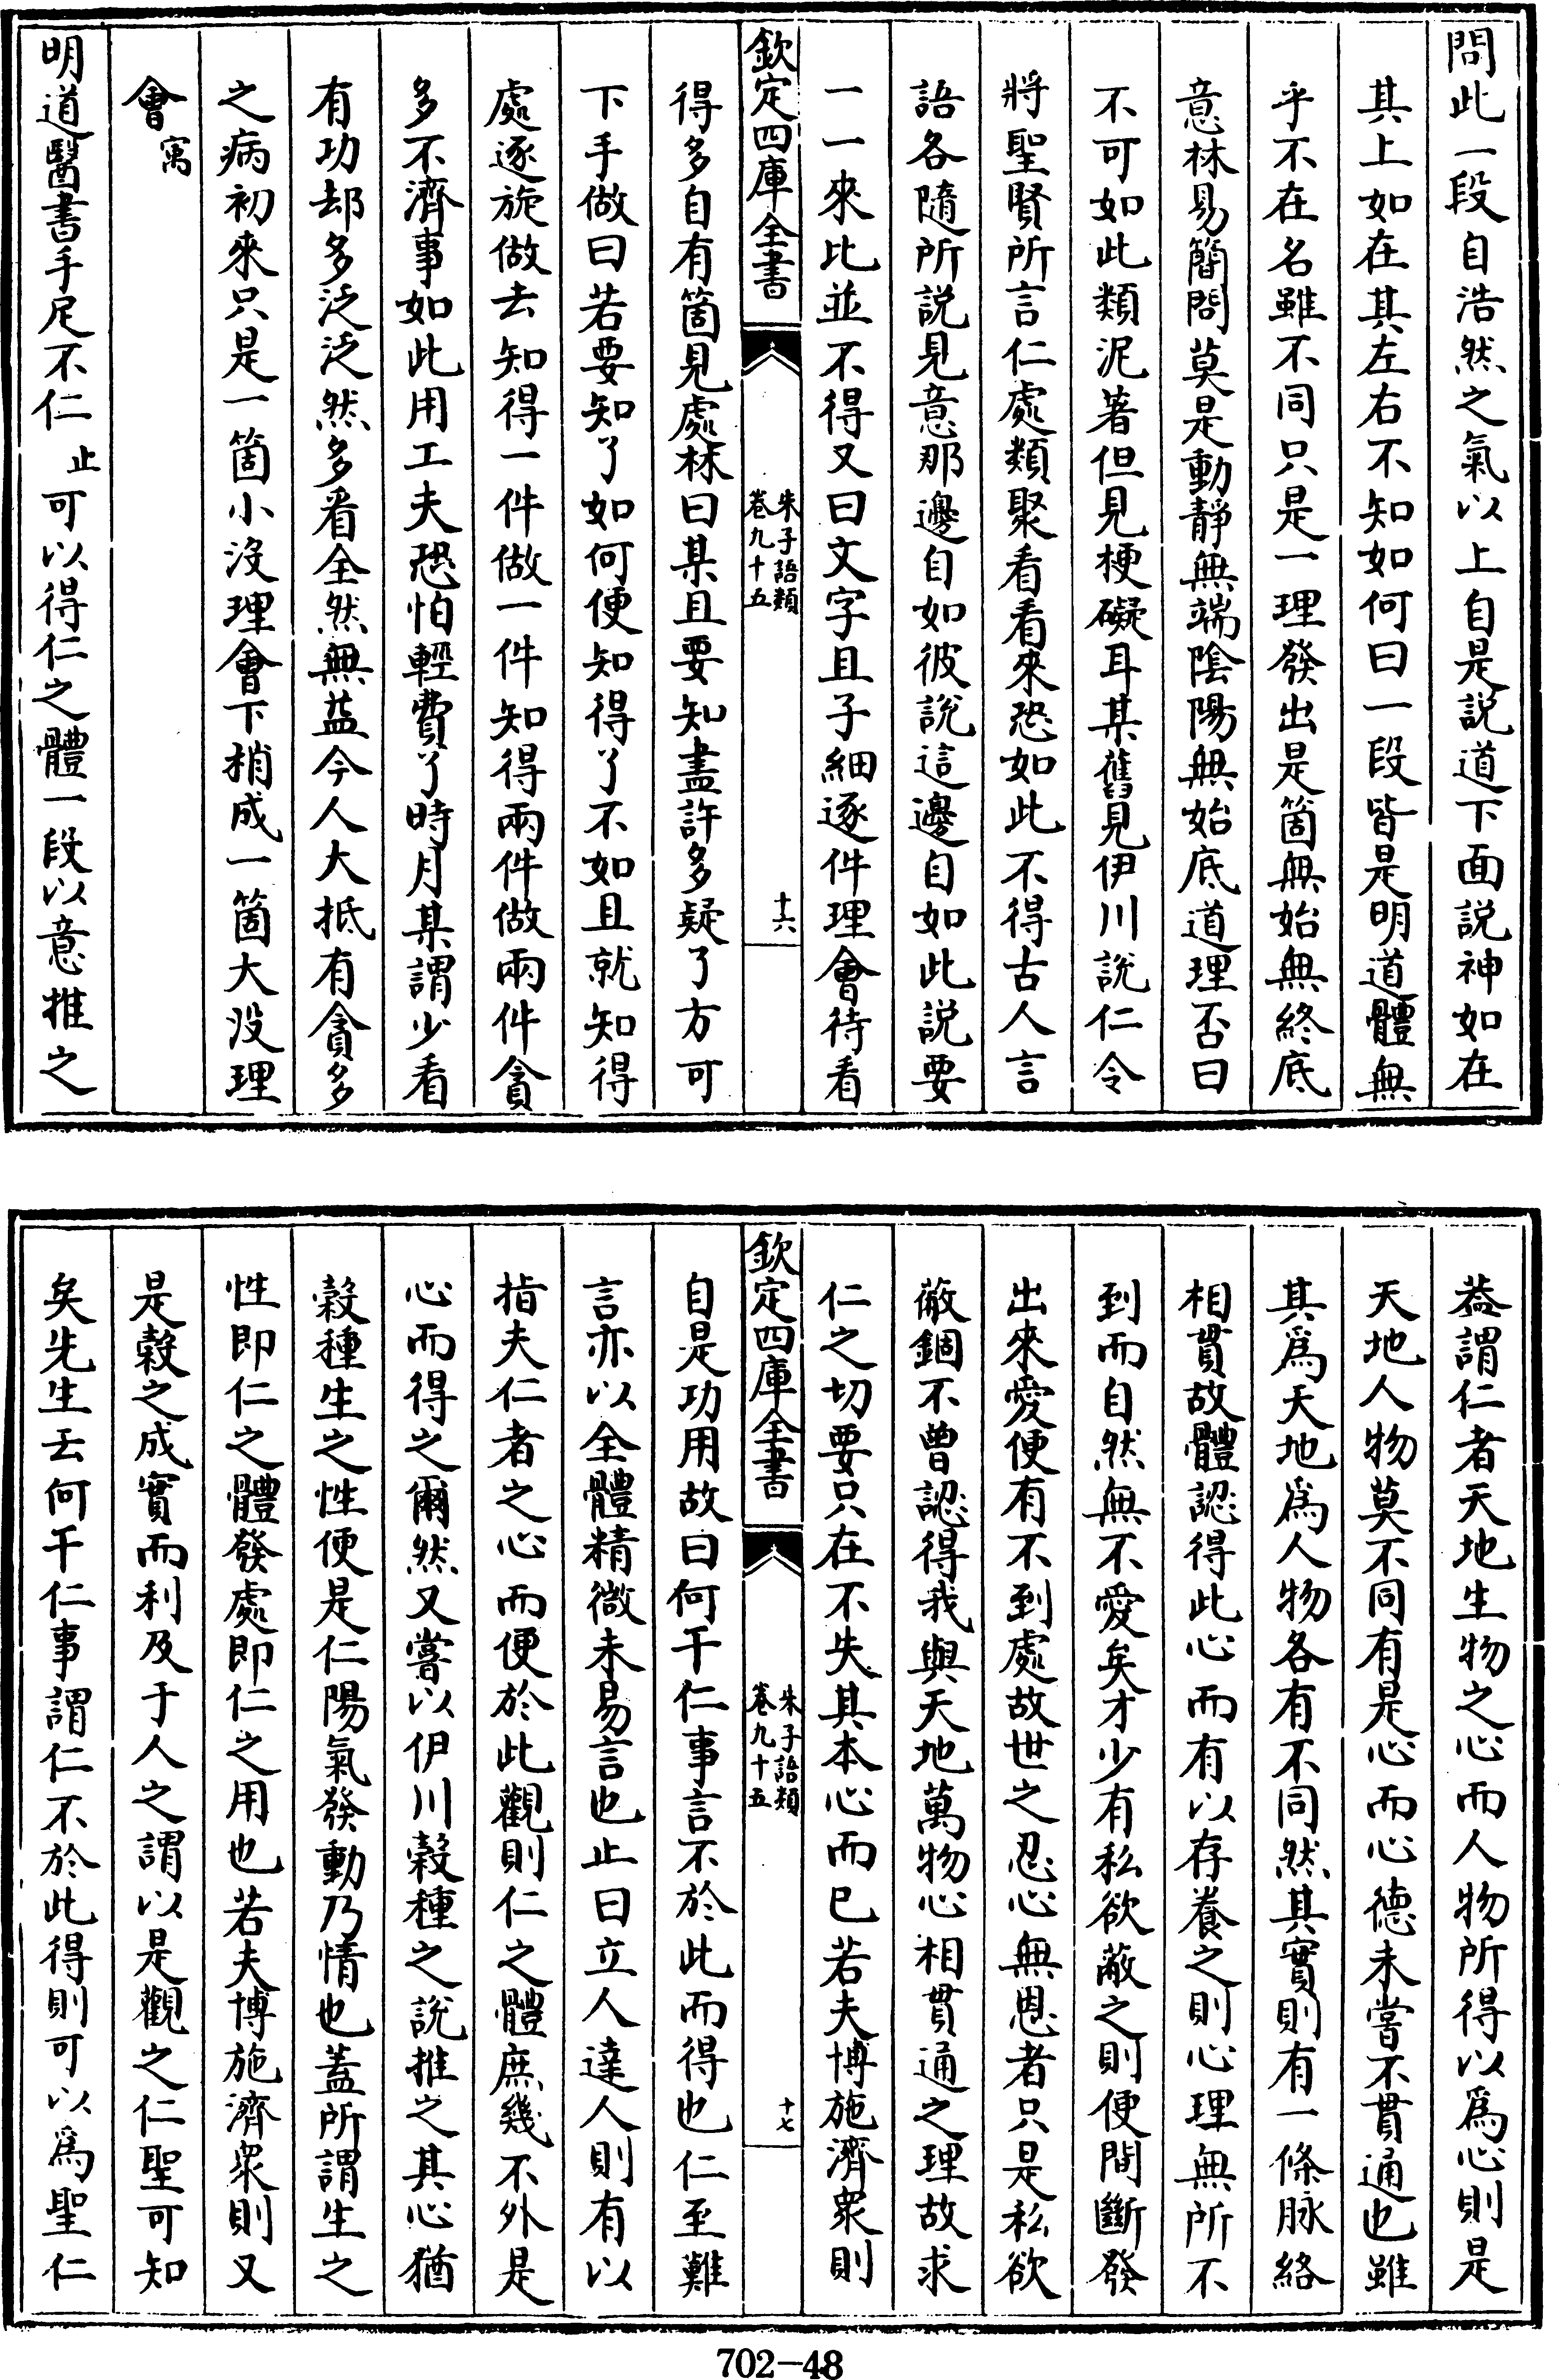 問此一段自浩然之氣以上自是説道下面説神如在
其上如在其左右不知如何曰一段皆是明道體無
乎不在名雖不同只是一理發出是箇無始無終底
意林易簡問莫是動靜無端陰陽無始底道理否曰
不可如此類泥著但見梗礙耳某舊見伊川說仁令
將聖賢所言仁處類聚看看來恐如此不得古人言
語各隨所説見意那邊自如彼說這邊自如此説要
一一來比並不得又曰文字且子細逐件理會待看
欽定四庫全書
朱子語類
卷九十五
十六
得多自有箇見處林曰某且要知盡許多疑了方可
下手做曰若要知了如何便知得了不如且就知得
處逐旋做去知得一件做一件知得兩件做兩件貪
多不濟事如此用工夫恐怕輕費了時月某謂少看
有功却多泛泛然多看全然無益今人大抵有貪多
之病初來只是一箇小没理會下梢成一箇大没理
會寓
明道醫書手足不仁止可以得仁之體一段以意推之
葢謂仁者天地生物之心而人物所得以為心則是
天地人物莫不同有是心而心德未嘗不貫通也雖
其為天地為人物各有不同然其實則有一條脉絡
相貫故體認得此心而有以存養之則心理無所不
到而自然無不愛矣才少有私欲蔽之則便間斷發
出來愛便有不到處故世之忍心無恩者只是私欲
蔽錮不曾認得我與天地萬物心相貫通之理故求
仁之切要只在不失其本心而已若夫博施濟衆則
欽定四庫全書
朱子語類
卷九十五
十七
自是功用故曰何干仁事言不於此而得也仁至難
言亦以全體精微未易言也止曰立人達人則有以
指夫仁者之心而便於此觀則仁之體庶幾不外是
心而得之爾然又嘗以伊川穀種之說推之其心猶
穀種生之性便是仁陽氣發動乃情也蓋所謂生之
性即仁之體發處即仁之用也若夫博施濟衆則又
是穀之成實而利及于人之謂以是觀之仁聖可知
矣先生云何干仁事謂仁不於此得則可以為聖仁
702-48